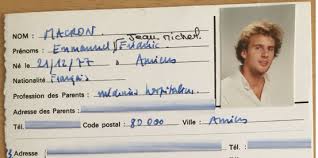 NOM : MACRON
Jean Michel
Prénoms : Emmanuel Frédéric
Né le 21/12/77 à Amiens
Nationalité Français
Profession des Parents : médecins hospitaliers
Adresse des Parents :
Tél. Code postal : 80 000 Ville : Amiens
Tél.